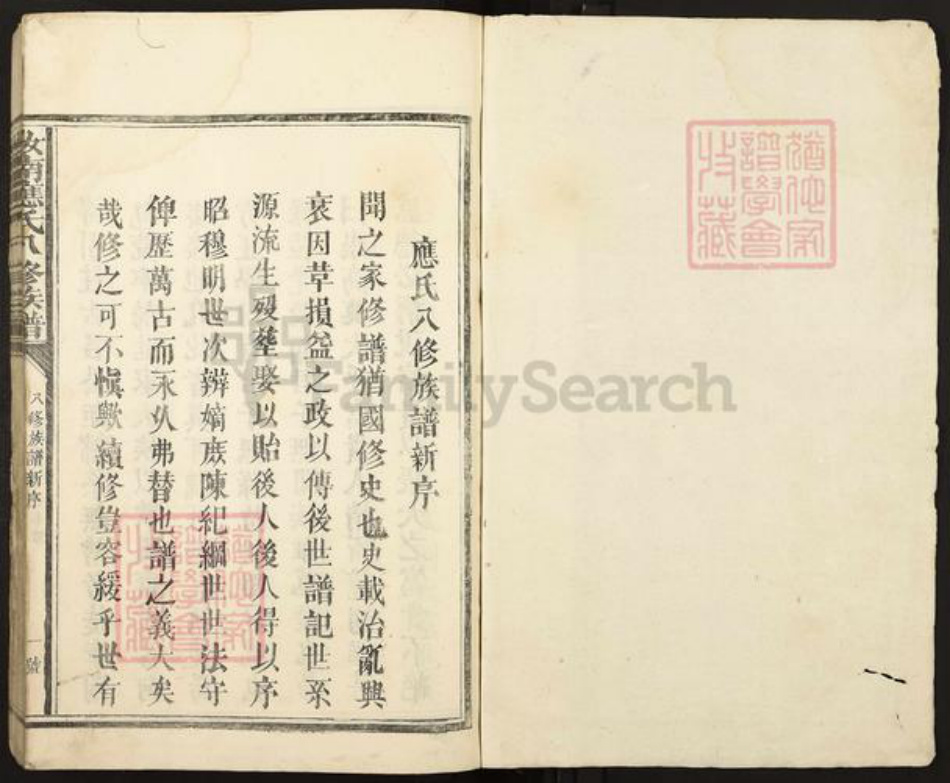 應氏八修族譜新序
聞之家修譜猶國修史也史載治亂興
衰因革損益之政以傳後世譜記世系
源流生殁塟娶以貽後人後人得以序
昭穆明世次辨嫡庶陳紀綱世世法守
俾歷萬古而永久弗替也譜之義大矣
哉修之可不慎歟續修豈容緩乎世有
汝南應氏八修族譜
八修族譜新序
一號
譜學會
收藏
FamilySearch